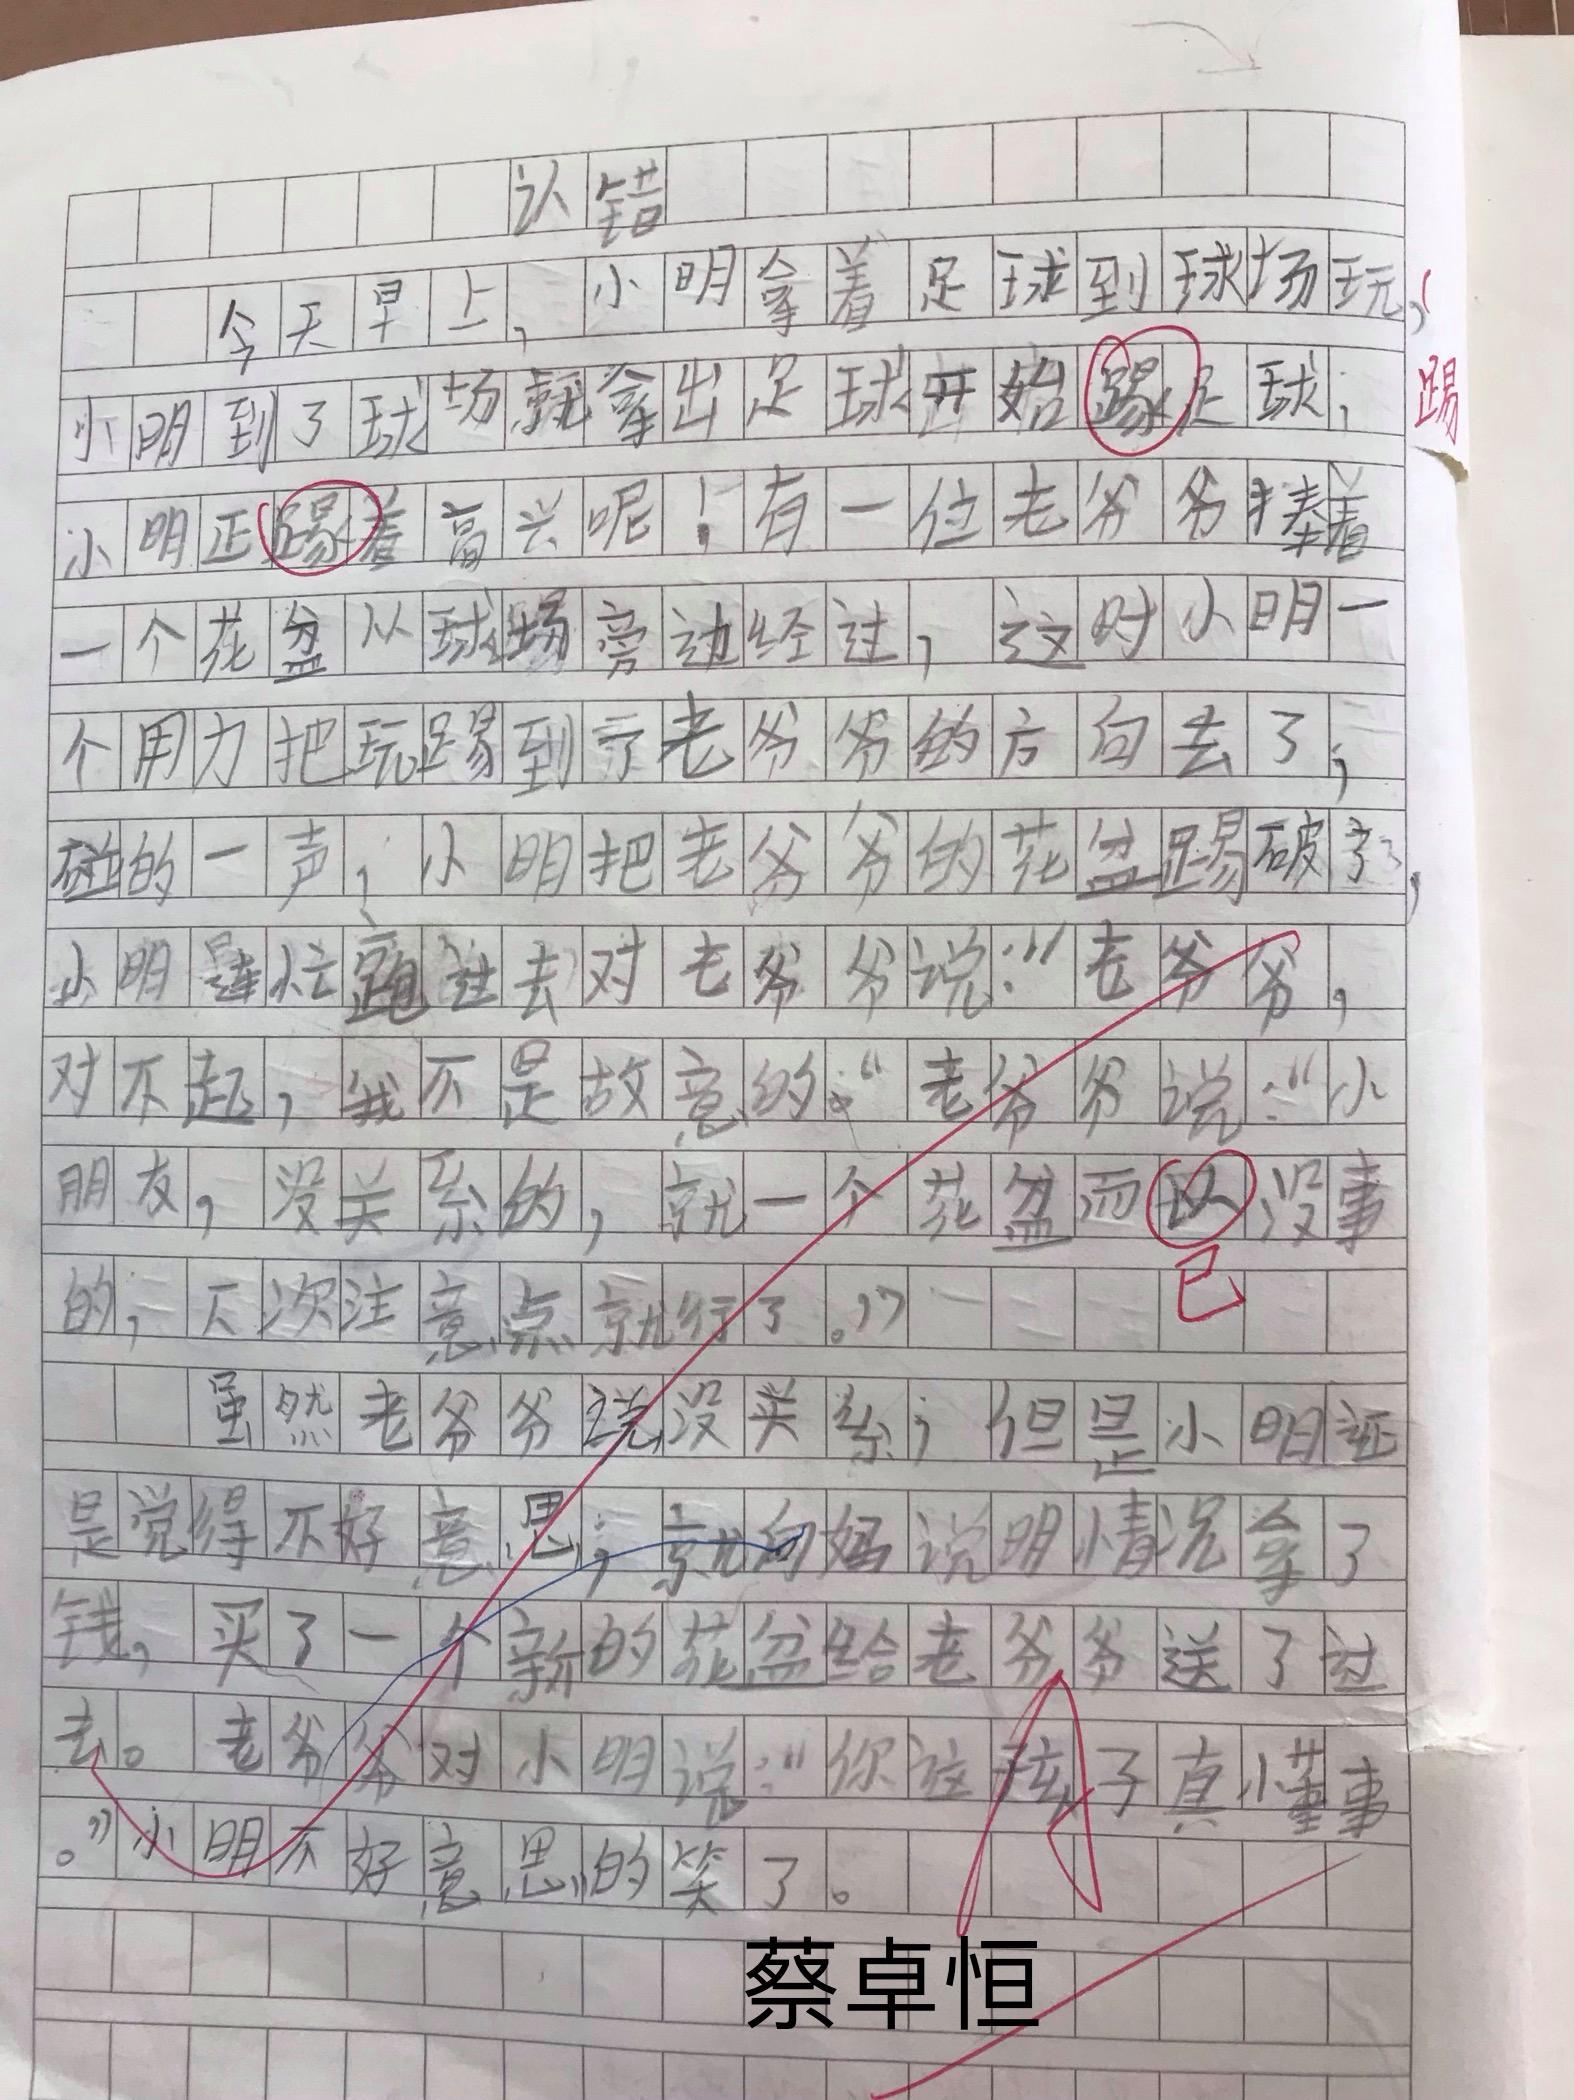 认错
今天早上，小明拿着足球到球场玩，
小明到了球场就拿出足球开始踢足球，踢
小明正踢着高兴呢！有一位老爷爷捧着
一个花盆从球场旁边经过，这时小明一
个用力把玩踢到了老爷爷的方向去了，
碰的一声，小明把老爷爷的花盆踢破了，
小明连忙跑过去对老爷爷说：“老爷爷，
对不起，我不是故意的。“老爷爷说：“小
朋友，没关系的，就一个花盆而以没事
已
的，下次注意点就行了。”
虽然老爷爷说没关系，但是小明还
是觉得不好意思，就向妈说明情况拿了
钱，买了一个新的花盆给老爷爷送了过
去。老爷爷对小明说：“你这孩子真懂事
。”小明不好意思的笑了。
A
蔡卓恒